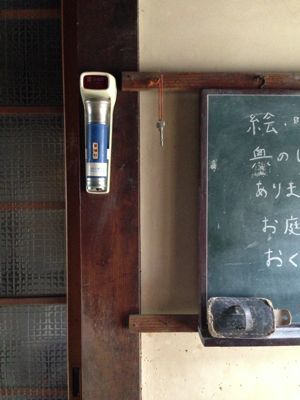 絵・
血のし
ありま
お庭
おく